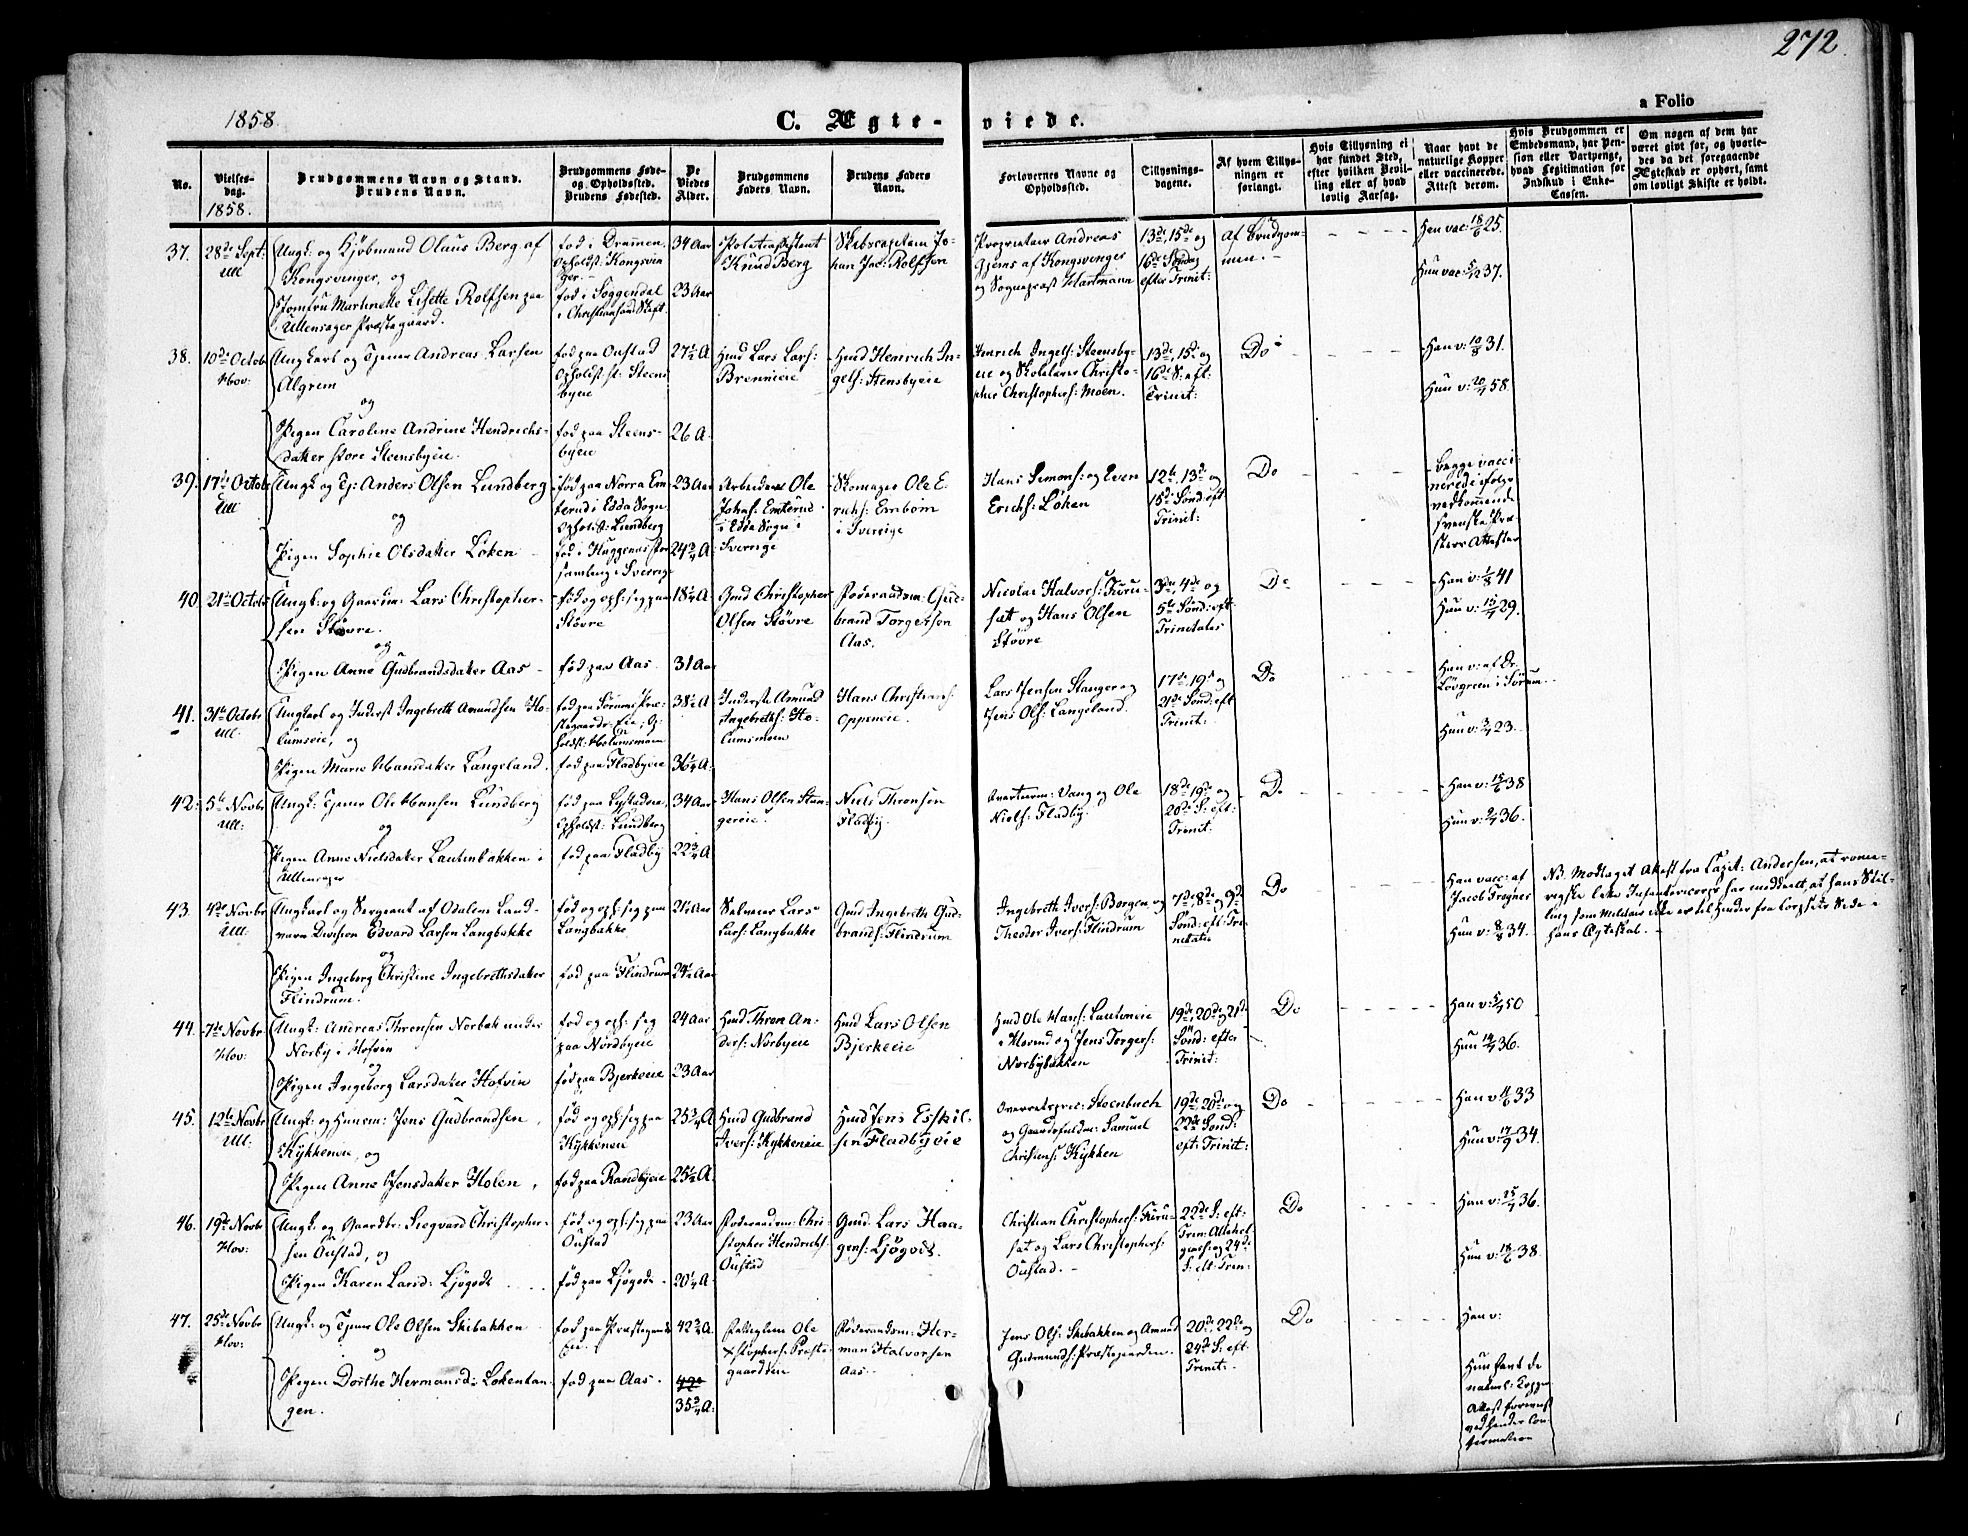 272
a Folio
1858
C. Ægte-
viede.
No.
Vielses-
dag.
1858.
Brudgommens Navn og Stand.
Brudens Navn.
Brudgommens Føde-
og Opholdssted.
Brudens Fødested.
De
Viedes
Alder.
Brudgommens
Faders Navn.
Brudens Faders
Navn.
Forlovernes Navne og
Opholdssted.
Tillysnings-
dagene.
Af hvem Tillys-
ningen er
forlangt.
Hvis Tillysning ei
har fundet Sted,
efter hvilken Bevil-
ling eller af hvad
lovlig Aarsag.
Naar havt de
naturlige Kopper
eller vaccinerede.
Attest derom.
Hvis Brudgommen er
Embedsmand, har Pen-
sion eller Vartpenge,
hvad Legitimation for
Indskud i Enke-
Cassen.
Om nogen af dem har
været givt før, og hvorle-
des da det foregaaende
Ægteskab er ophørt, samt
om lovligt Skifte er holdt.
37.
28de Sept:
Ull
Ungk: og Kjøbmand Olaus Berg af
Kongsvinger, og
Jomfru Martinette Lisette Rolfsen paa
Ullensager Præstegaard.
fød i Drammen
Opholdst: Kongsvin
ger.
fød i Soggendal
i Christiansand Stift
34 Aar
23 Aar
Politiassistent
Knud Berg
Skibscapitain Jo-
han Jac: Rolfsen
Proprietair Andreas
Gjems af Kongsvinger
og Sognepræst Hartmann
13de, 15de og
16de Søndag
efter Trinit:
Af Brudgom-
men.
Han vac: 18/6 25.
Hun vac: 5/12 37.
38.
10de Octob
Hov:
Ungkarl og Tjener Andreas Larsen
Algrim
og
Pigen Caroline Andrine Hendrichs-
datter store Steensbyeie.
fød paa Oustad
Opholdst st: Steens
byeie
fød paa Steens-
byeie
27½ A
26 A.
Hmd Lars Lars:
Brennieie
Hmd Henrich In-
gels: Stensbyeie
Henrich Ingels: Steensby-
eie og Skolelærer Christo-
pher Christophers: Moen.
13de, 15de og
16de S: eft:
Trinit:
Do
Han v: 10/8 31.
Hun v: 20/7 58.
39.
17de Octob
Ull
Ungk og Tj: Anders Olsen Lundberg
og
Pigen Sophie Olsdatter Løken
fød paa Norra Em
terud i Edda Sogn
Opholdst: Lundberg
fød i Huggenæs For
samling i Sverrig
23 Aar
24¾ A.
Arbeideren Ole
Johans: Emterud
i Edda Sogn i
Sverige
Skomager Ole E-
richs: Embom
i Sverige
Hans Simons: og Even
Erichs: Løken
12te, 13de og
15de Sønd: eft
Trinit:
Do
Begge vacci-
nerede ifølge
vedkommende
svenske Præ-
sters Attester
40.
21de Octob
Ungk: og Gaardm: Lars Christopher-
sen Støvre.
og
Pigen Anne Gudbrandsdatter Aas
fød og oph: sig paa
Støvre
fød paa Aas
18¼ A
31 Aar
Gmd Christopher
Olsen Støvre
Føderaadsm: Gud-
brand Torgersen
Aas.
Nicolai Halvors: Kiru-
sæt og Hans Olsen
Støvre
3de, 4de og
5te Sønd: eft
Trinitatis
Do
Han v: 1/8 41
Hun v: 15/7 29.
41.
31te Octobr
Ull:
Ungkarl og Inderst Ingebreth Amundsen Ho-
lumseie, og
Pigen Marie Hansdatter Langeland.
fød paa Sørums Præ-
stegaards-Eie, Op-
holdst: Holumsmoen
fød paa Fladbyeie
38½ A
36¼ A.
Inderste Amund
Ingebreths: Ho-
lumsmoen
Hans Christians:
Oppeneie.
Lars Jensen Stanger og
Jens Ols: Langeland.
17de, 19de og
21de Sønd: eft
Trinit:
Do
Han v: af Dr.
Løvgreen i Sørum.
Hun v: 3/7 23.
42.
5te Novbr
Ull:
Ungk: Tjener Ole Hansen Lundberg
og
Pigen Anne Nielsdatter Lautenbakken i
Ullensager
Opholdst: Lundberg
fød paa Fladby
34 Aar
22¾ A
Hans Olsen Stan-
gereie.
Niels Thronsen
Fladby.
Qvarteerm: Vang og Ole
Niels: Fladby.
18de, 19de og
20de S: eft:
Trinit:
Do
Han v: 15/6 38
Hun v: 9/7 36.
43.
4de Novbr
Ull:
Ungkarl og Sergeant af Odalens Land-
værns Division Edvard Larsen Langbakke
og
Pigen Ingeborg Christine Ingebrethsdatter
Flindrum.
fød og oph: sig paa
Langbakke
fød paa Flindrum
21½ Aar
24½ Aar
Selveier Lars
Lars: Langbakke
Gmd Ingebreth Gud-
brands: Flindrum
Ingebreth Ivers: Borgen og
Theodor Ivers: Flindrum
7de, 8de og 9de
Sønd: eft: Tri-
nitatis
Do
Han vacc: af
Jacob Frogner
Hun v: 8/8 34.
NB. Modtaget Attest fra Capit: Andersen, at rome-
rigske lette Infantericorps har meddeelt, at hans Stil-
ling som Militair ikke er til Hinder fra Corpsets Side i
hans Ægteskab.
44.
7de Novbr
Hov:
Ungk: Andreas Thronsen Norbak under
Norby i Hofvin
og
Pigen Ingeborg Larsdatter Hofvin
fød og oph: sig
paa Nordbyeie
fød paa Bjerkeeie
24 Aar
23 Aar
Hmd Thron An-
ders: Norbyeie
Hmd Lars Olsen
Bjerkeeie
Hmd Ole Hans: Lauteneie
i Hovind og Jens Torgers:
Norbybakken
19de, 20de og 21de
Sønd: efter
Trinit:
Do
Han v: 5/7 50
Hun 14/7 36.
45.
12te Novbr
Ull:
Ungk: og Huusm: Jens Gudbrandsen
Kykkeneie, og
Pigen Anne Jensdatter Holen,
fød og oph: sig paa
Kykkeneie
fød paa Randbyeie
25¾ A
25½ A.
Hmd Gudbrand
Ivers: Kykkeneie
Hmd Jens Eskil-
sen Fladbyeie
Overretspro: Steenbuch
og Gaardsfuldm: Samuel
Christens: Kykken
19de, 20de og
22de Sønd:
eft: Trinit:
Do
Han v: 4/6 33
Hun v: 17/9 34.
46.
19de Novbr
Hov:
Ungk: og Gaardbr: Siegvard Christopher-
sen Oustad, og
Pigen Karen Larsd: Ljøgodt
fød og oph: sig paa
Oustad
fød paa Ljøgodt
23 Aar
20¼ A.
Føderaadsm: Chri-
stopher Hendrichs:
Oustad
Gmd: Lars Haa-
gens: Ljøgodt.
Christian Christophers: Kiru-
sæt og Lars Christophers:
Oustad.
22de S: eft:
Trin: Allehel-
gens: og 24de
S: eft: Trin:
Do
Han v: 25/7 36.
Hun v: 18/6 38.
47.
25de Novbr
Hov:
Ungk: og Tjener Ole Olsen Skibakken
og
Pigen Dorthe Hermansd: Lokenhau-
gen.
fød paa Præstegaards
Eie.
fød paa Aas.
42¾ A.
35¾ A:
Ole
Xstophers: Præste-
gaardseie
Føderaadsm: Her-
man Halvorsen
Aas.
Jens Ols: Skibakken og Amund
Gudmunds: Præstegaarden.
20de, 22de og
24de S: eft
Trinit:
Do
Han v:
Hun havt de
naturl: Kopper
Attest forevist
ved hendes Con-
firmation